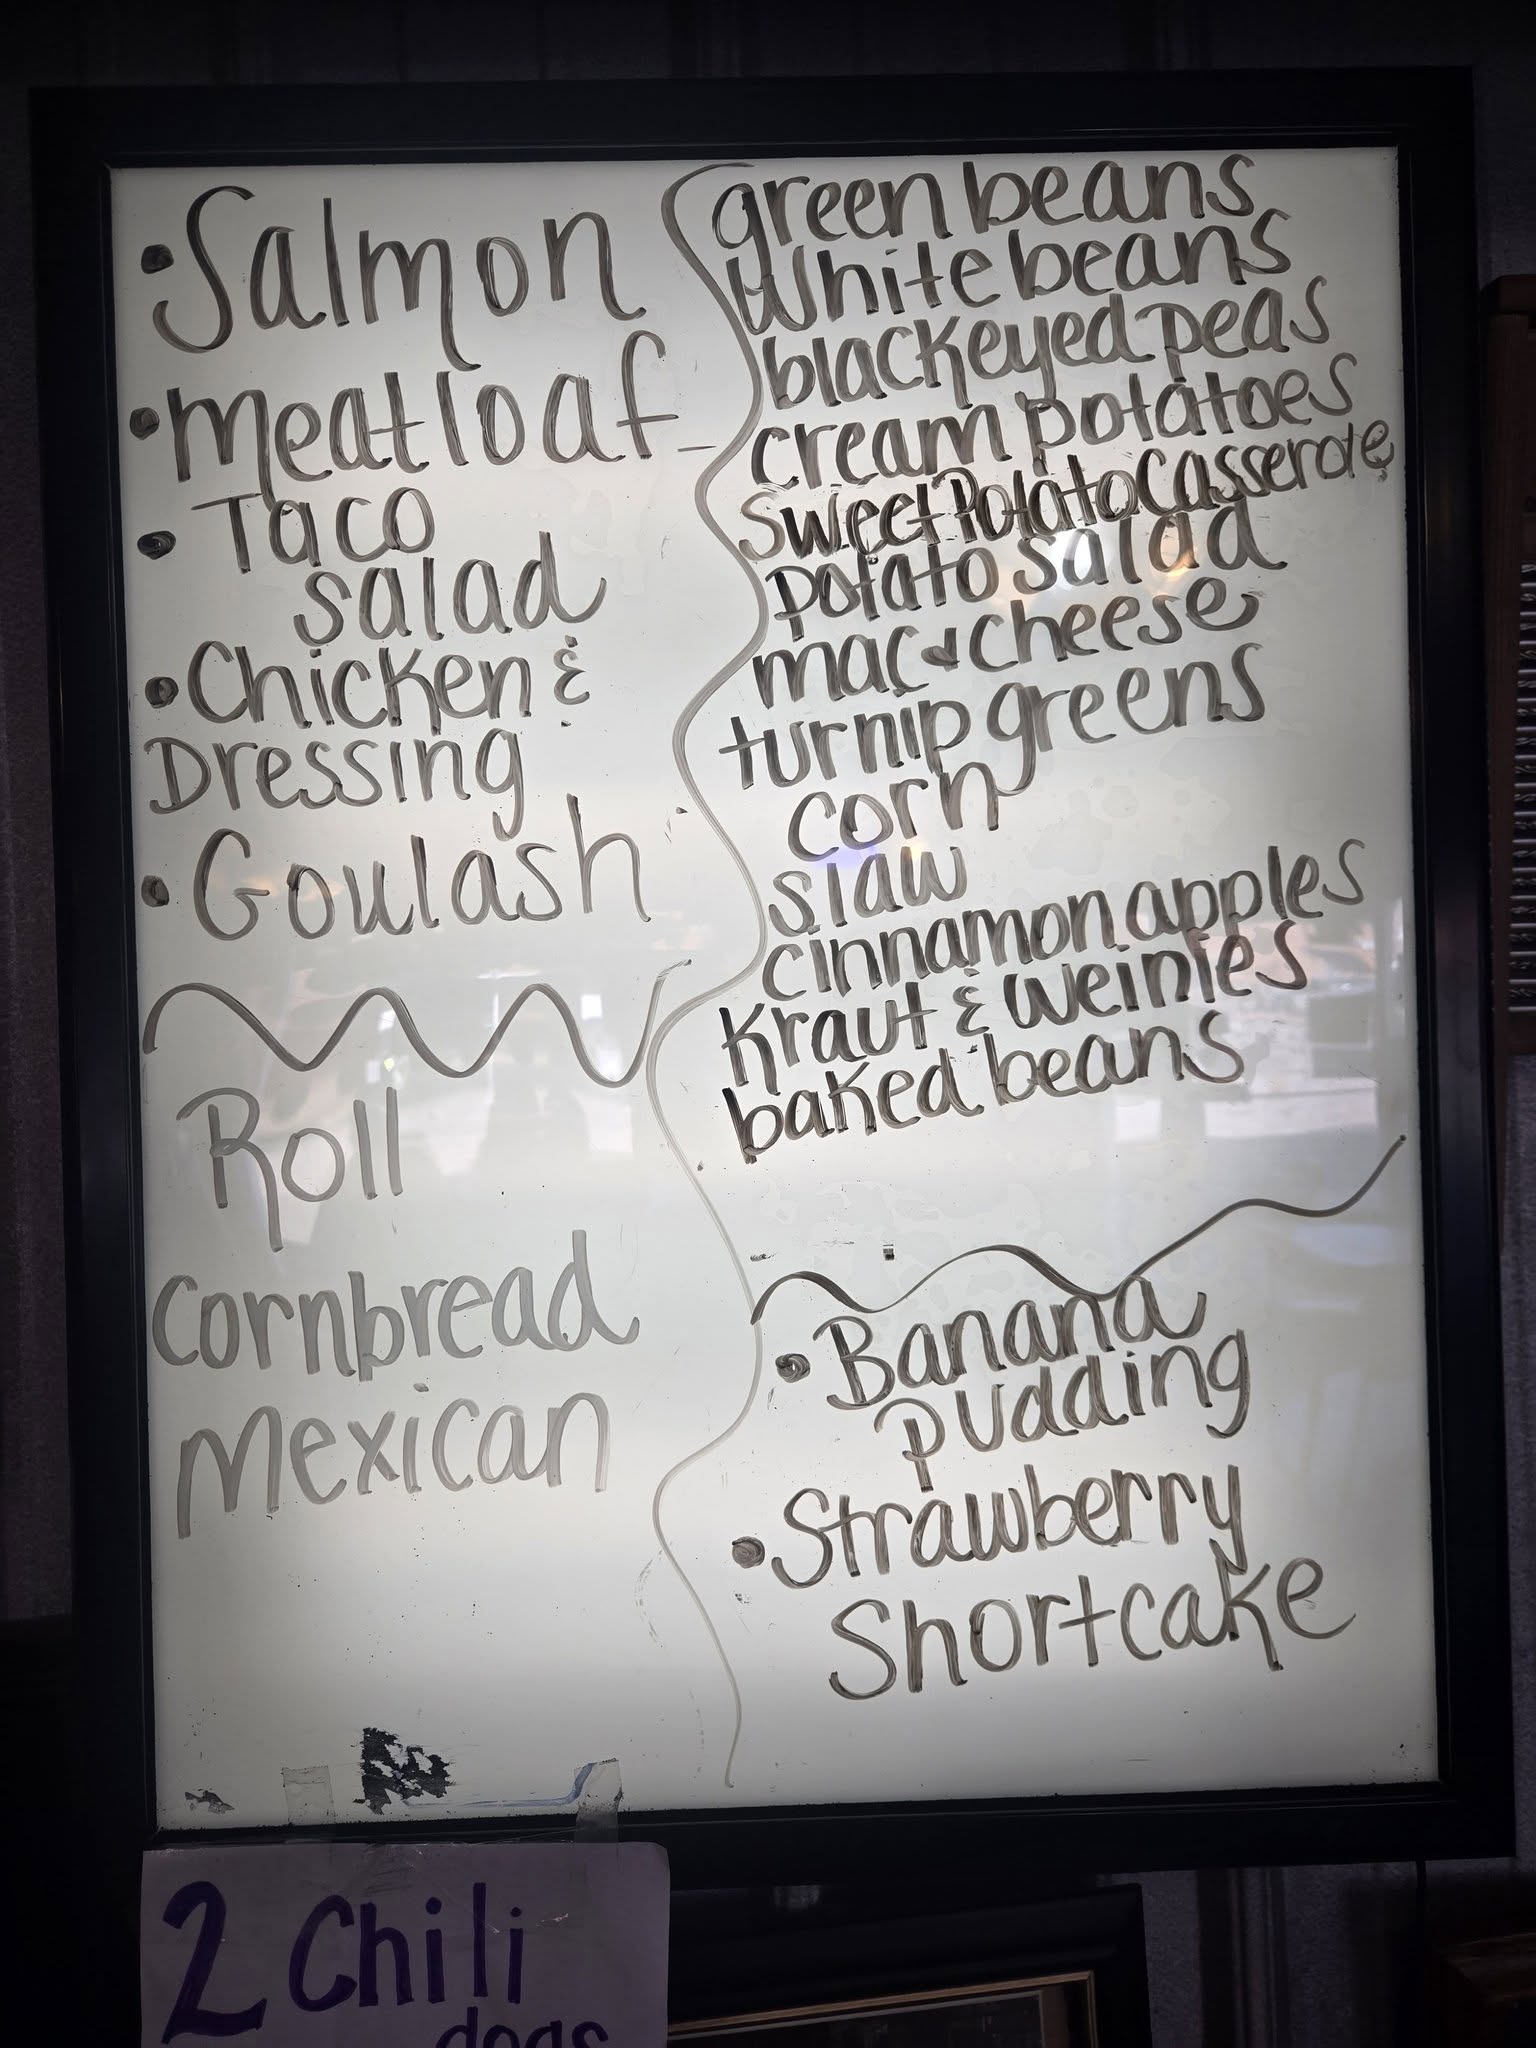 • Salmon
• Meatloaf
• Taco
salad
• Chicken &
Dressing
• Goulash
Roll
Cornbread
Mexican
green beans
White beans
blackeyed peas
cream potatoes
Sweet Potato Casserole
potato salad
mac & cheese
turnip greens
corn
slaw
cinnamon apples
Kraut & weinies
baked beans
• Banana
pudding
• Strawberry
Shortcake
2 Chili
dogs